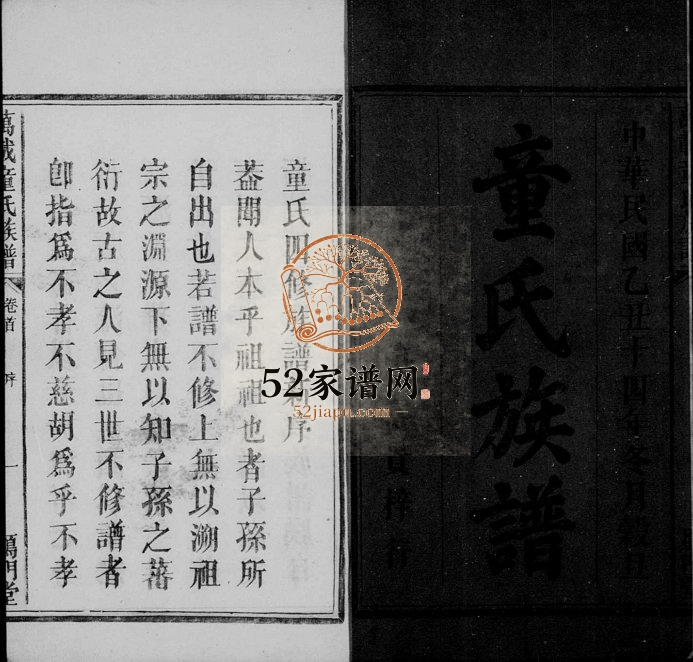 中華民國乙
童氏族譜
梓行
童氏四修族譜序
葢聞人本乎祖祖也者子孫所
自出也若譜不修上無以溯祖
宗之淵源下無以知子孫之蕃
衍故古之人見三世不修譜者
卽指爲不孝不慈胡爲乎不孝
萬載童氏族譜 卷首 序 一
52家谱网
52jiapu.com